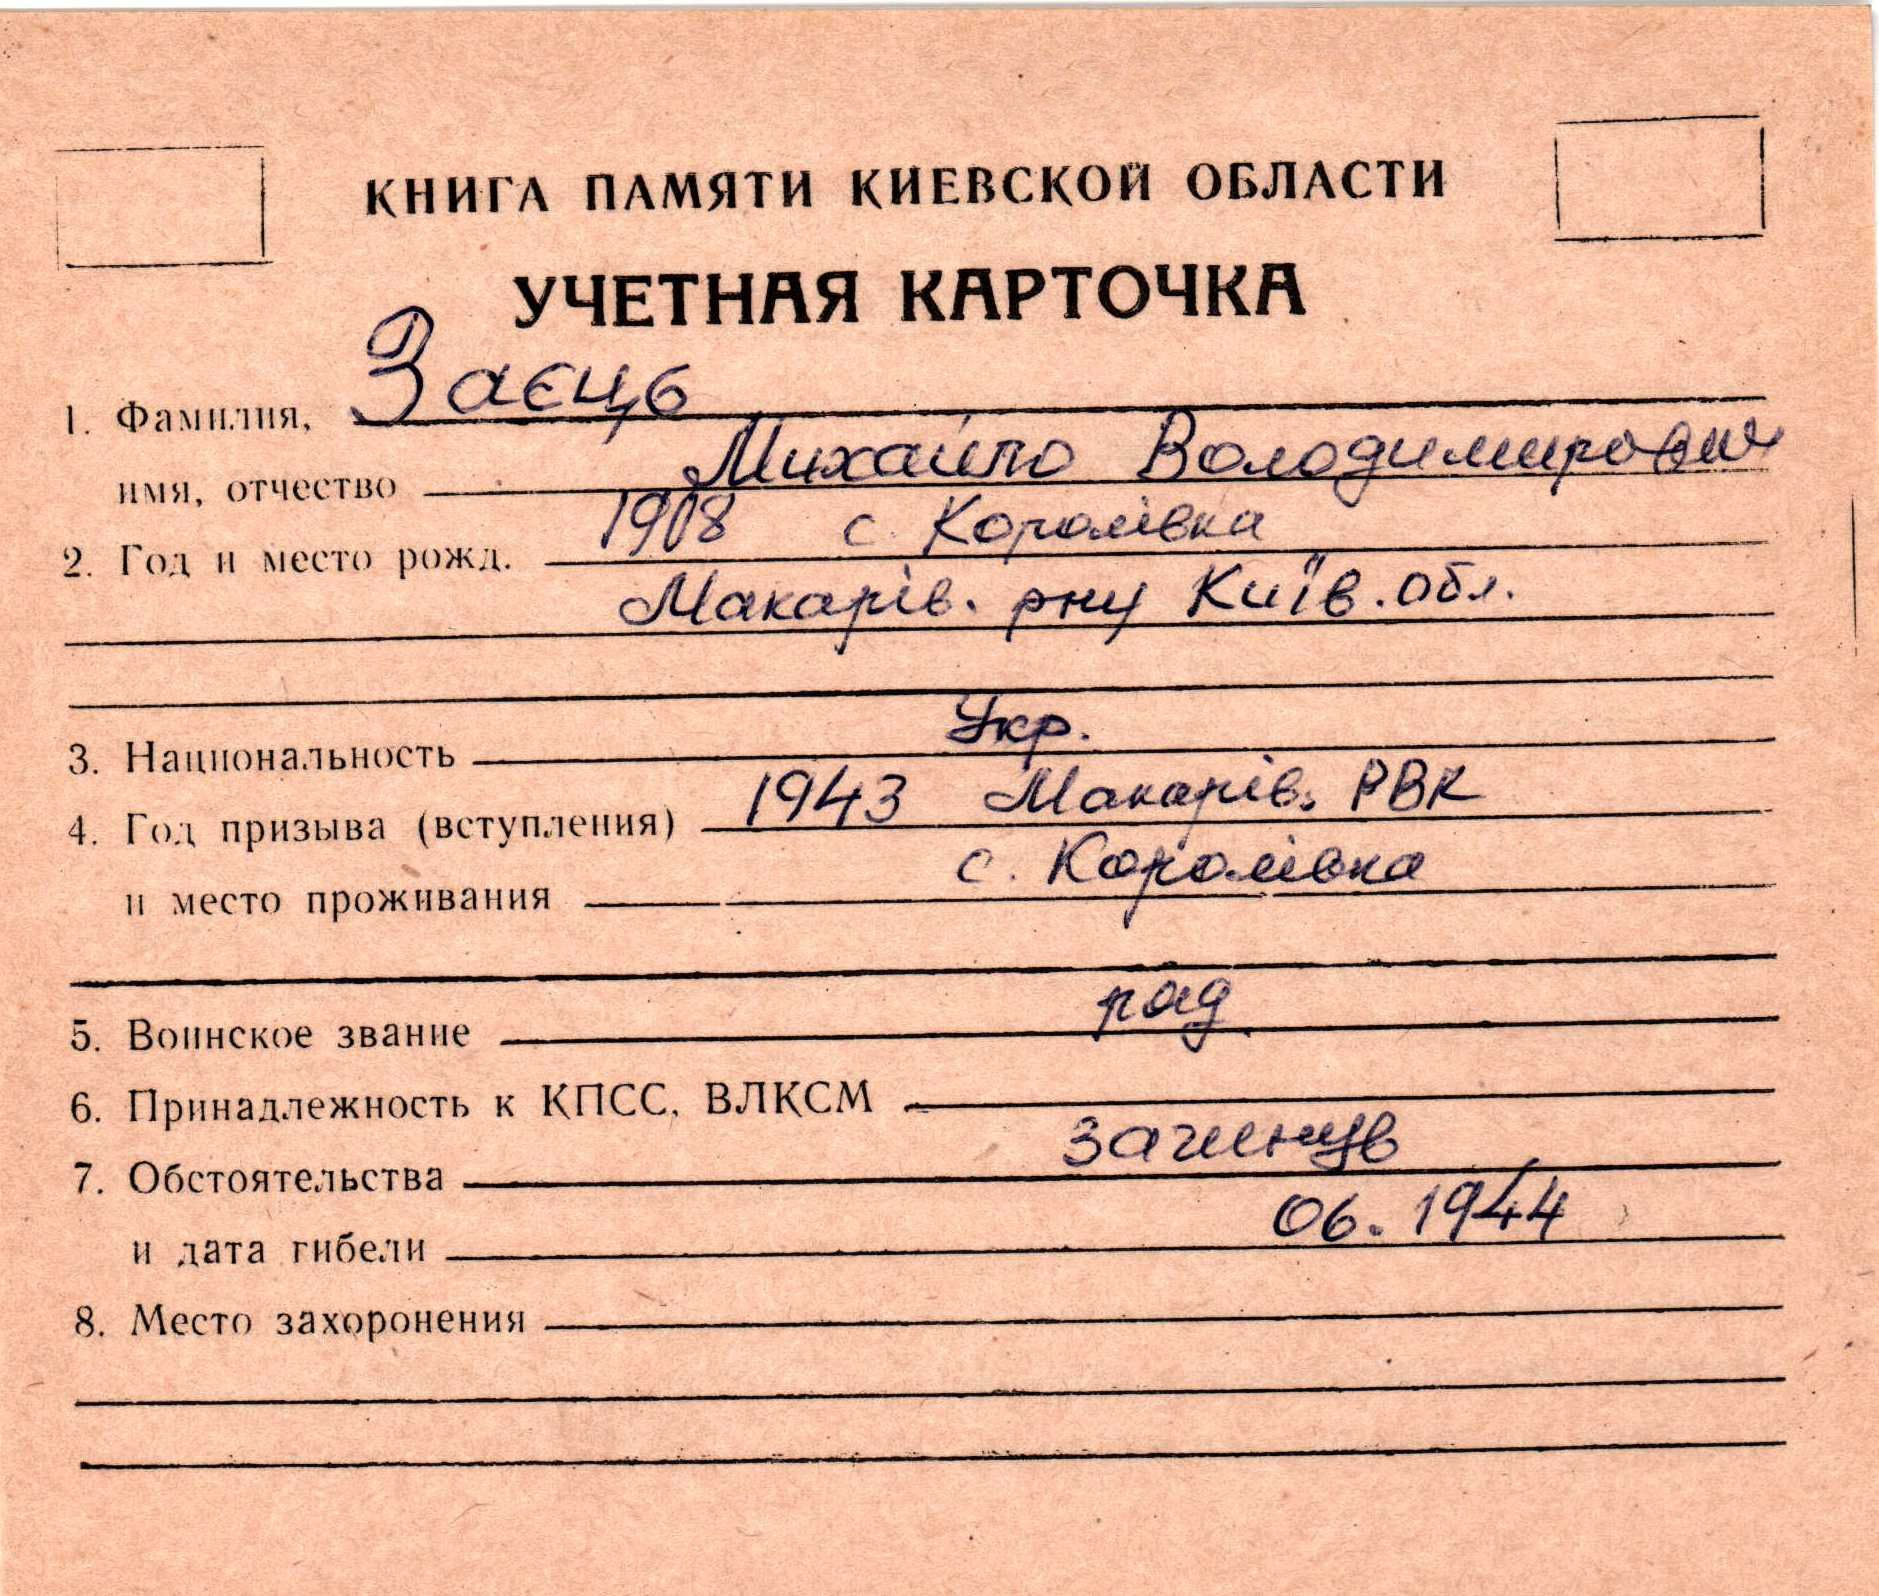 КНИГА ПАМЯТИ КИЕВСКОЙ ОБЛАСТИ
УЧЕТНАЯ КАРТОЧКА
1. Фамилия, Заєць
имя, отчество Михайло Володимирович
2. Год и место рожд. 1908 с. Королівка
Макарів. рну Київ. обл.
3. Национальность Укр.
4. Год призыва (вступления) 1943 Макарів. РВК
и место проживания с. Королівка
5. Воинское звание ряд.
6. Принадлежность к КПСС, ВЛКСМ
7. Обстоятельства загинув
и дата гибели 06. 1944
8. Место захоронения